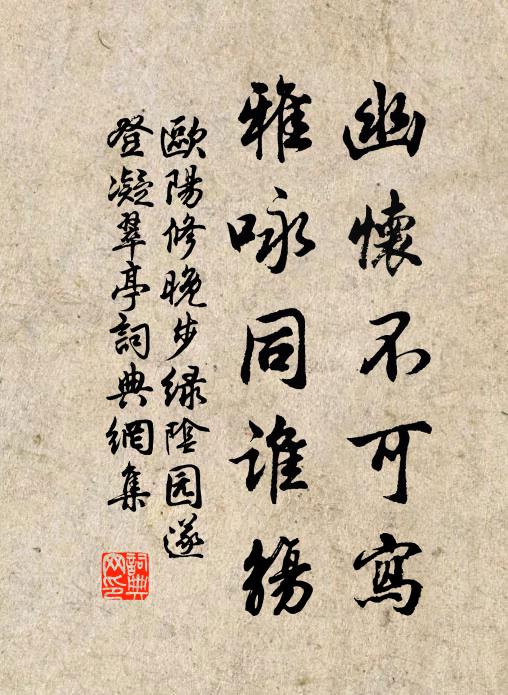 幽懷不可寫
雅咏同誰觴
歐陽修晚步绿陰园遂
登凝翠亭詞典網集
詞典網印